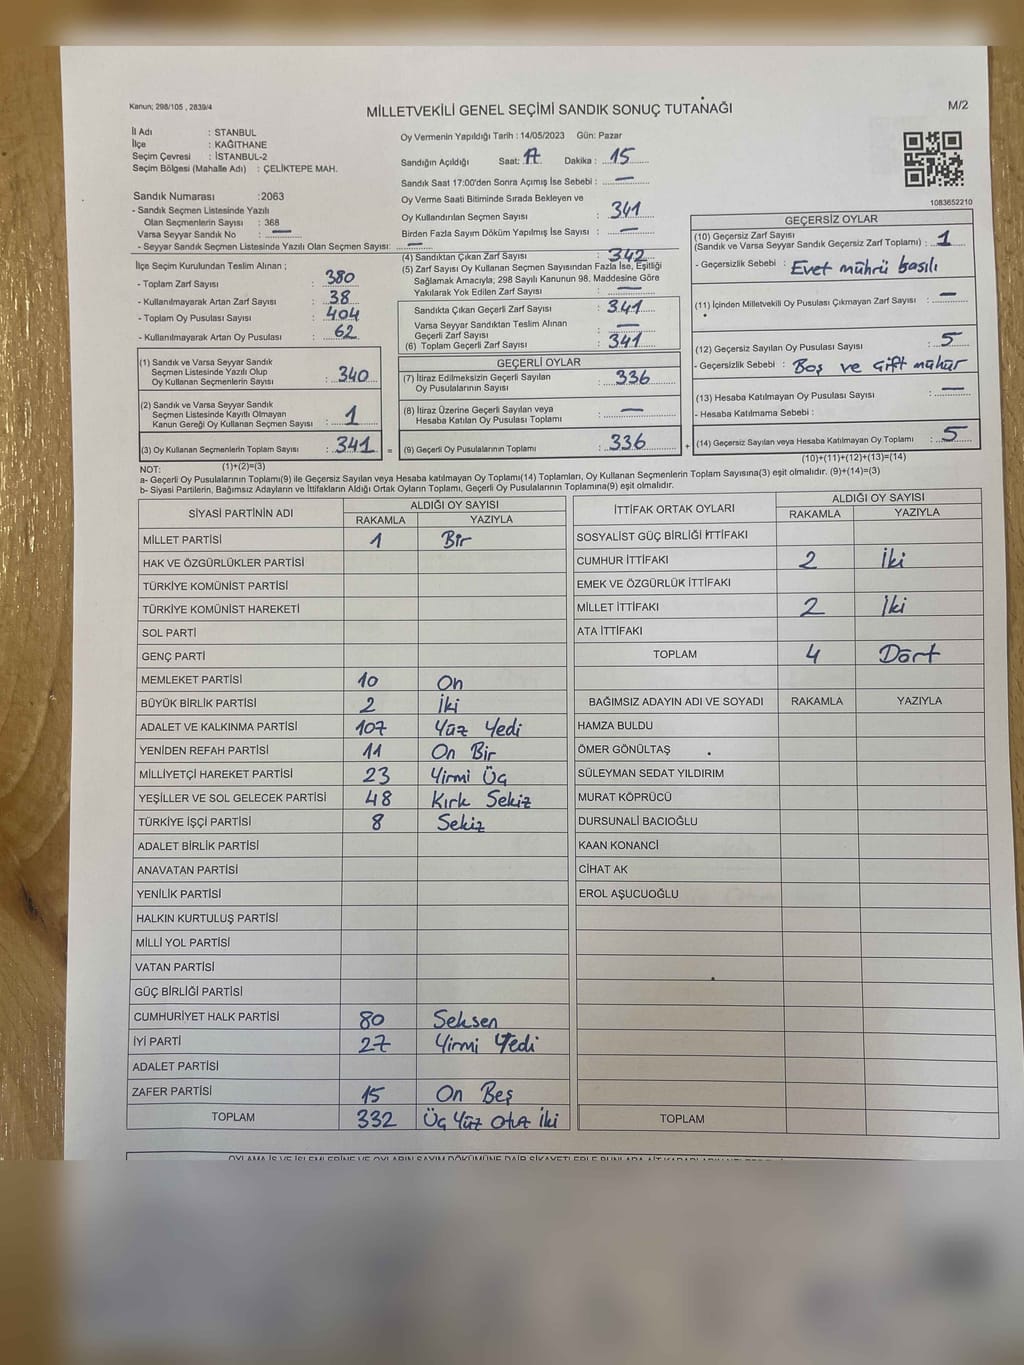 Kanun; 298/105 , 2839/4
MİLLETVEKİLİ GENEL SEÇİMİ SANDIK SONUÇ TUTANAĞI
M/2
İl Adı : STANBUL
İlçe : KAĞITHANE
Seçim Çevresi : İSTANBUL-2
Seçim Bölgesi (Mahalle Adı) : ÇELİKTEPE MAH.
Sandık Numarası :2063
- Sandık Seçmen Listesinde Yazılı
Olan Seçmenlerin Sayısı : 368
Varsa Seyyar Sandık No : —
- Seyyar Sandık Seçmen Listesinde Yazılı Olan Seçmen Sayısı: —
İlçe Seçim Kurulundan Teslim Alınan ;
- Toplam Zarf Sayısı : 380
- Kullanılmayarak Artan Zarf Sayısı : 38
- Toplam Oy Pusulası Sayısı : 404
- Kullanılmayarak Artan Oy Pusulası : 62
(1) Sandık ve Varsa Seyyar Sandık
Seçmen Listesinde Yazılı Olup
Oy Kullanan Seçmenlerin Sayısı : 340
(2) Sandık ve Varsa Seyyar Sandık
Seçmen Listesinde Kayıtlı Olmayan
Kanun Gereği Oy Kullanan Seçmen Sayısı : 1
(3) Oy Kullanan Seçmenlerin Toplam Sayısı : 341 =
(1)+(2)=(3)
Oy Vermenin Yapıldığı Tarih : 14/05/2023 Gün: Pazar
Sandığın Açıldığı Saat: 17 Dakika : 15
Sandık Saat 17:00'den Sonra Açımış İse Sebebi : —
Oy Verme Saati Bitiminde Sırada Bekleyen ve
Oy Kullandırılan Seçmen Sayısı : 341
Birden Fazla Sayım Döküm Yapılmış İse Sayısı : —
(4) Sandıktan Çıkan Zarf Sayısı : 342
(5) Zarf Sayısı Oy Kullanan Seçmen Sayısından Fazla İse, Eşitliği
Sağlamak Amacıyla, 298 Sayılı Kanunun 98. Maddesine Göre
Yakılarak Yok Edilen Zarf Sayısı : —
Sandıkta Çıkan Geçerli Zarf Sayısı : 341
Varsa Seyyar Sandıktan Teslim Alınan
Geçerli Zarf Sayısı : —
(6) Toplam Geçerli Zarf Sayısı : 341
GEÇERLİ OYLAR
(7) İtiraz Edilmeksizin Geçerli Sayılan
Oy Pusulalarının Sayısı : 336
(8) İtiraz Üzerine Geçerli Sayılan veya
Hesaba Katılan Oy Pusulası Toplamı : —
(9) Geçerli Oy Pusulalarının Toplamı : 336 +
1083652210
GEÇERSİZ OYLAR
(10) Geçersiz Zarf Sayısı
(Sandık ve Varsa Seyyar Sandık Geçersiz Zarf Toplamı) : 1
- Geçersizlik Sebebi : Evet mührü basılı
(11) İçinden Milletvekili Oy Pusulası Çıkmayan Zarf Sayısı : —
(12) Geçersiz Sayılan Oy Pusulası Sayısı : 5
- Geçersizlik Sebebi : Boş ve Çift mühür
(13) Hesaba Katılmayan Oy Pusulası Sayısı : —
- Hesaba Katılmama Sebebi :
(14) Geçersiz Sayılan veya Hesaba Katılmayan Oy Toplamı : 5
(10)+(11)+(12)+(13)=(14)
NOT:
a- Geçerli Oy Pusulalarının Toplamı(9) ile Geçersiz Sayılan veya Hesaba katılmayan Oy Toplamı(14) Toplamları, Oy Kullanan Seçmenlerin Toplam Sayısına(3) eşit olmalıdır. (9)+(14)=(3)
b- Siyasi Partilerin, Bağımsız Adayların ve İttifakların Aldığı Ortak Oyların Toplamı, Geçerli Oy Pusulalarının Toplamına(9) eşit olmalıdır.
SİYASİ PARTİNİN ADI ALDIĞI OY SAYISI
RAKAMLA YAZIYLA
MİLLET PARTİSİ 1 Bir
HAK VE ÖZGÜRLÜKLER PARTİSİ
TÜRKİYE KOMÜNİST PARTİSİ
TÜRKİYE KOMÜNİST HAREKETİ
SOL PARTİ
GENÇ PARTİ
MEMLEKET PARTİSİ 10 On
BÜYÜK BİRLİK PARTİSİ 2 İki
ADALET VE KALKINMA PARTİSİ 107 Yüz Yedi
YENİDEN REFAH PARTİSİ 11 On Bir
MİLLİYETÇİ HAREKET PARTİSİ 23 Yirmi Üç
YEŞİLLER VE SOL GELECEK PARTİSİ 48 Kırk Sekiz
TÜRKİYE İŞÇİ PARTİSİ 8 Sekiz
ADALET BİRLİK PARTİSİ
ANAVATAN PARTİSİ
YENİLİK PARTİSİ
HALKIN KURTULUŞ PARTİSİ
MİLLİ YOL PARTİSİ
VATAN PARTİSİ
GÜÇ BİRLİĞİ PARTİSİ
CUMHURİYET HALK PARTİSİ 80 Seksen
İYİ PARTİ 27 Yirmi Yedi
ADALET PARTİSİ
ZAFER PARTİSİ 15 On Beş
TOPLAM 332 Üç Yüz Otuz İki
İTTİFAK ORTAK OYLARI ALDIĞI OY SAYISI
RAKAMLA YAZIYLA
SOSYALİST GÜÇ BİRLİĞİ İTTİFAKI
CUMHUR İTTİFAKI 2 İki
EMEK VE ÖZGÜRLÜK İTTİFAKI
MİLLET İTTİFAKI 2 İki
ATA İTTİFAKI
TOPLAM 4 Dört
BAĞIMSIZ ADAYIN ADI VE SOYADI RAKAMLA YAZIYLA
HAMZA BULDU
ÖMER GÖNÜLTAŞ
SÜLEYMAN SEDAT YILDIRIM
MURAT KÖPRÜCÜ
DURSUNALİ BACIOĞLU
KAAN KONANCİ
CİHAT AK
EROL AŞUCUOĞLU
TOPLAM